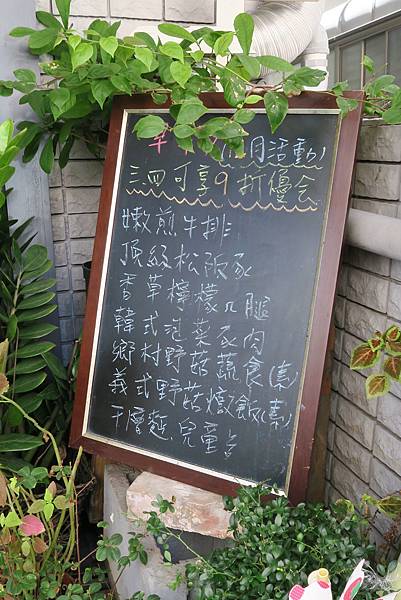 月活動
三四可享9折優会
嫩煎牛排
頂級松阪豕
香草檸檬ㄇ腿
韓式泡菜豕肉
鄉村野菇蔬食(素)
義式野菇燉飯(素)
千層麵,兒童